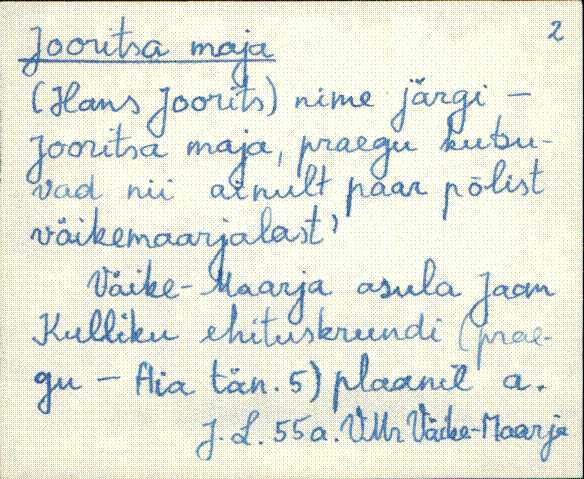 2
Jooritsa maja
(Hans Joorits) nime järgi -
Jooritsa maja, praegu kutsu-
vad nii ainult paar põlist
väikemaarjalast'
Väike-Maarja asula Jaan
Kulliku ehituskrundi (prae-
gu - Aia tän. 5) plaanil a.
J. L. 55a. VMr Väike-Maarja